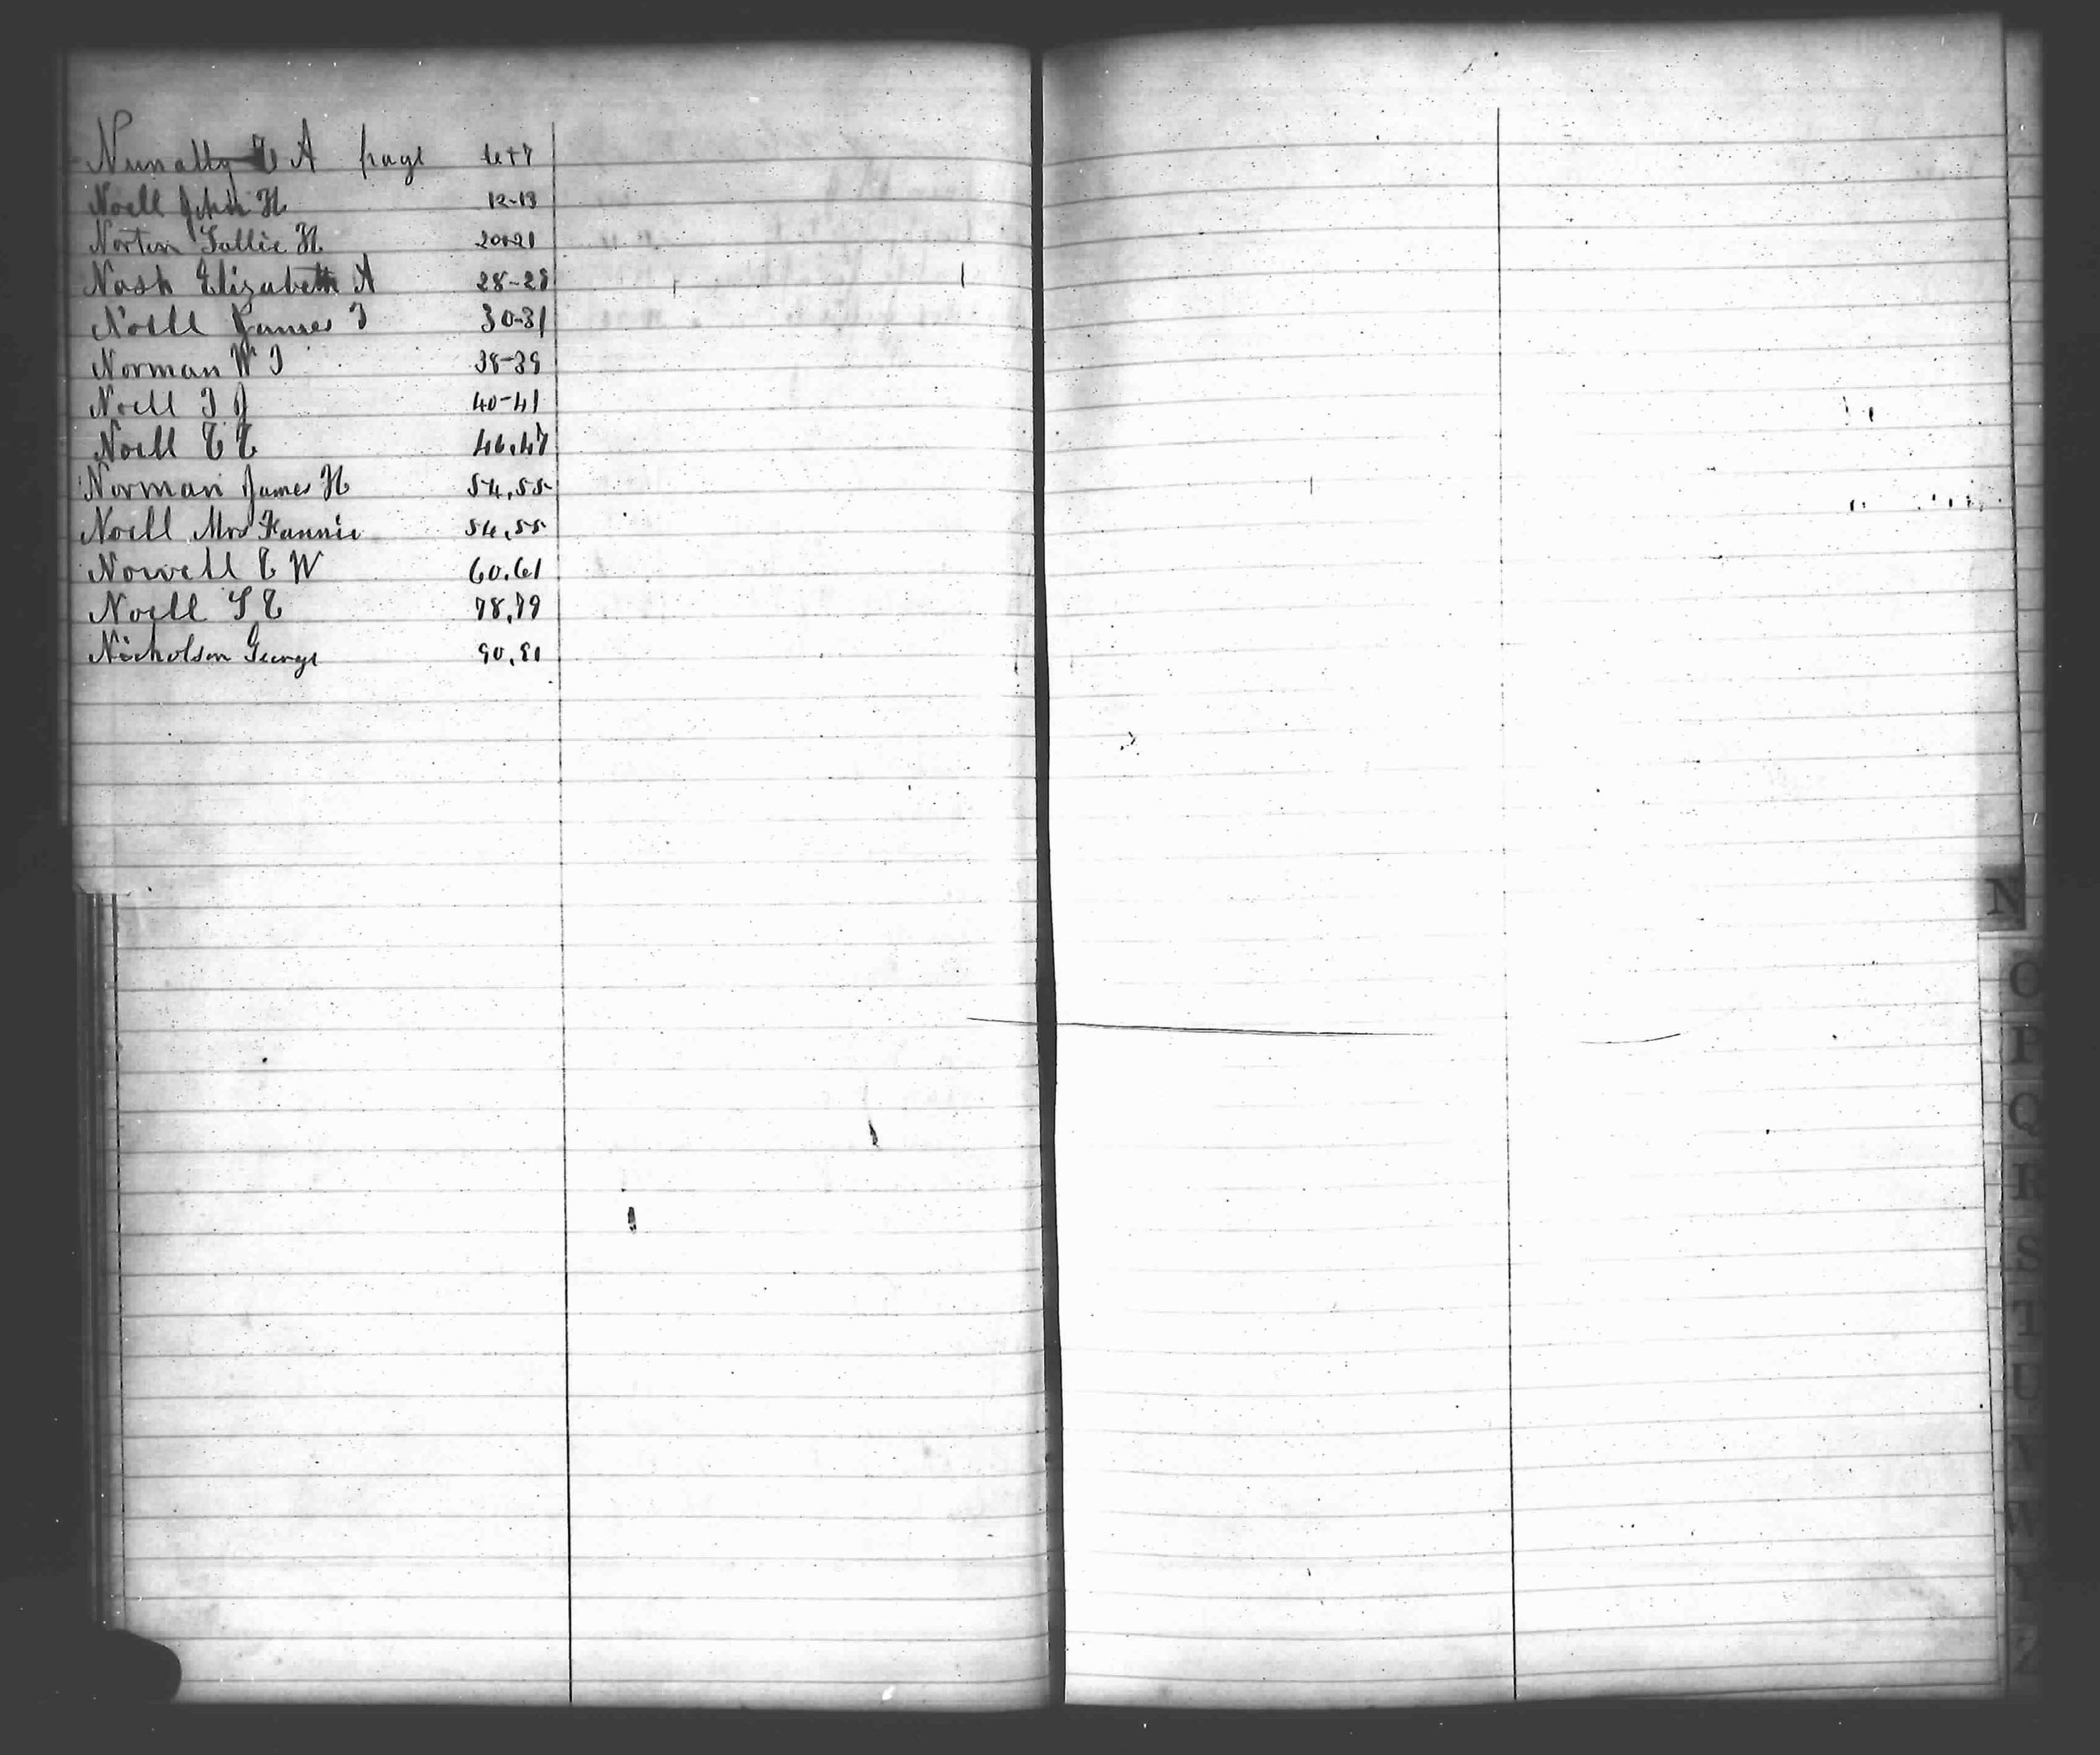 Nunally E A page 6+7
Noell John H 12-13
Norton Sallie H 20+21
Nash Elizabeth A 28-29
Noell James T 30-31
Norman W T 38-39
Noell T J 40-41
Noell E E 46,47
Norman James H 54,55
Noell Mrs Fannie 54,55
Nowell E W 60,61
Noell S E 78,79
Nicholson George 90,91
N
O
P
Q
R
S
T
U